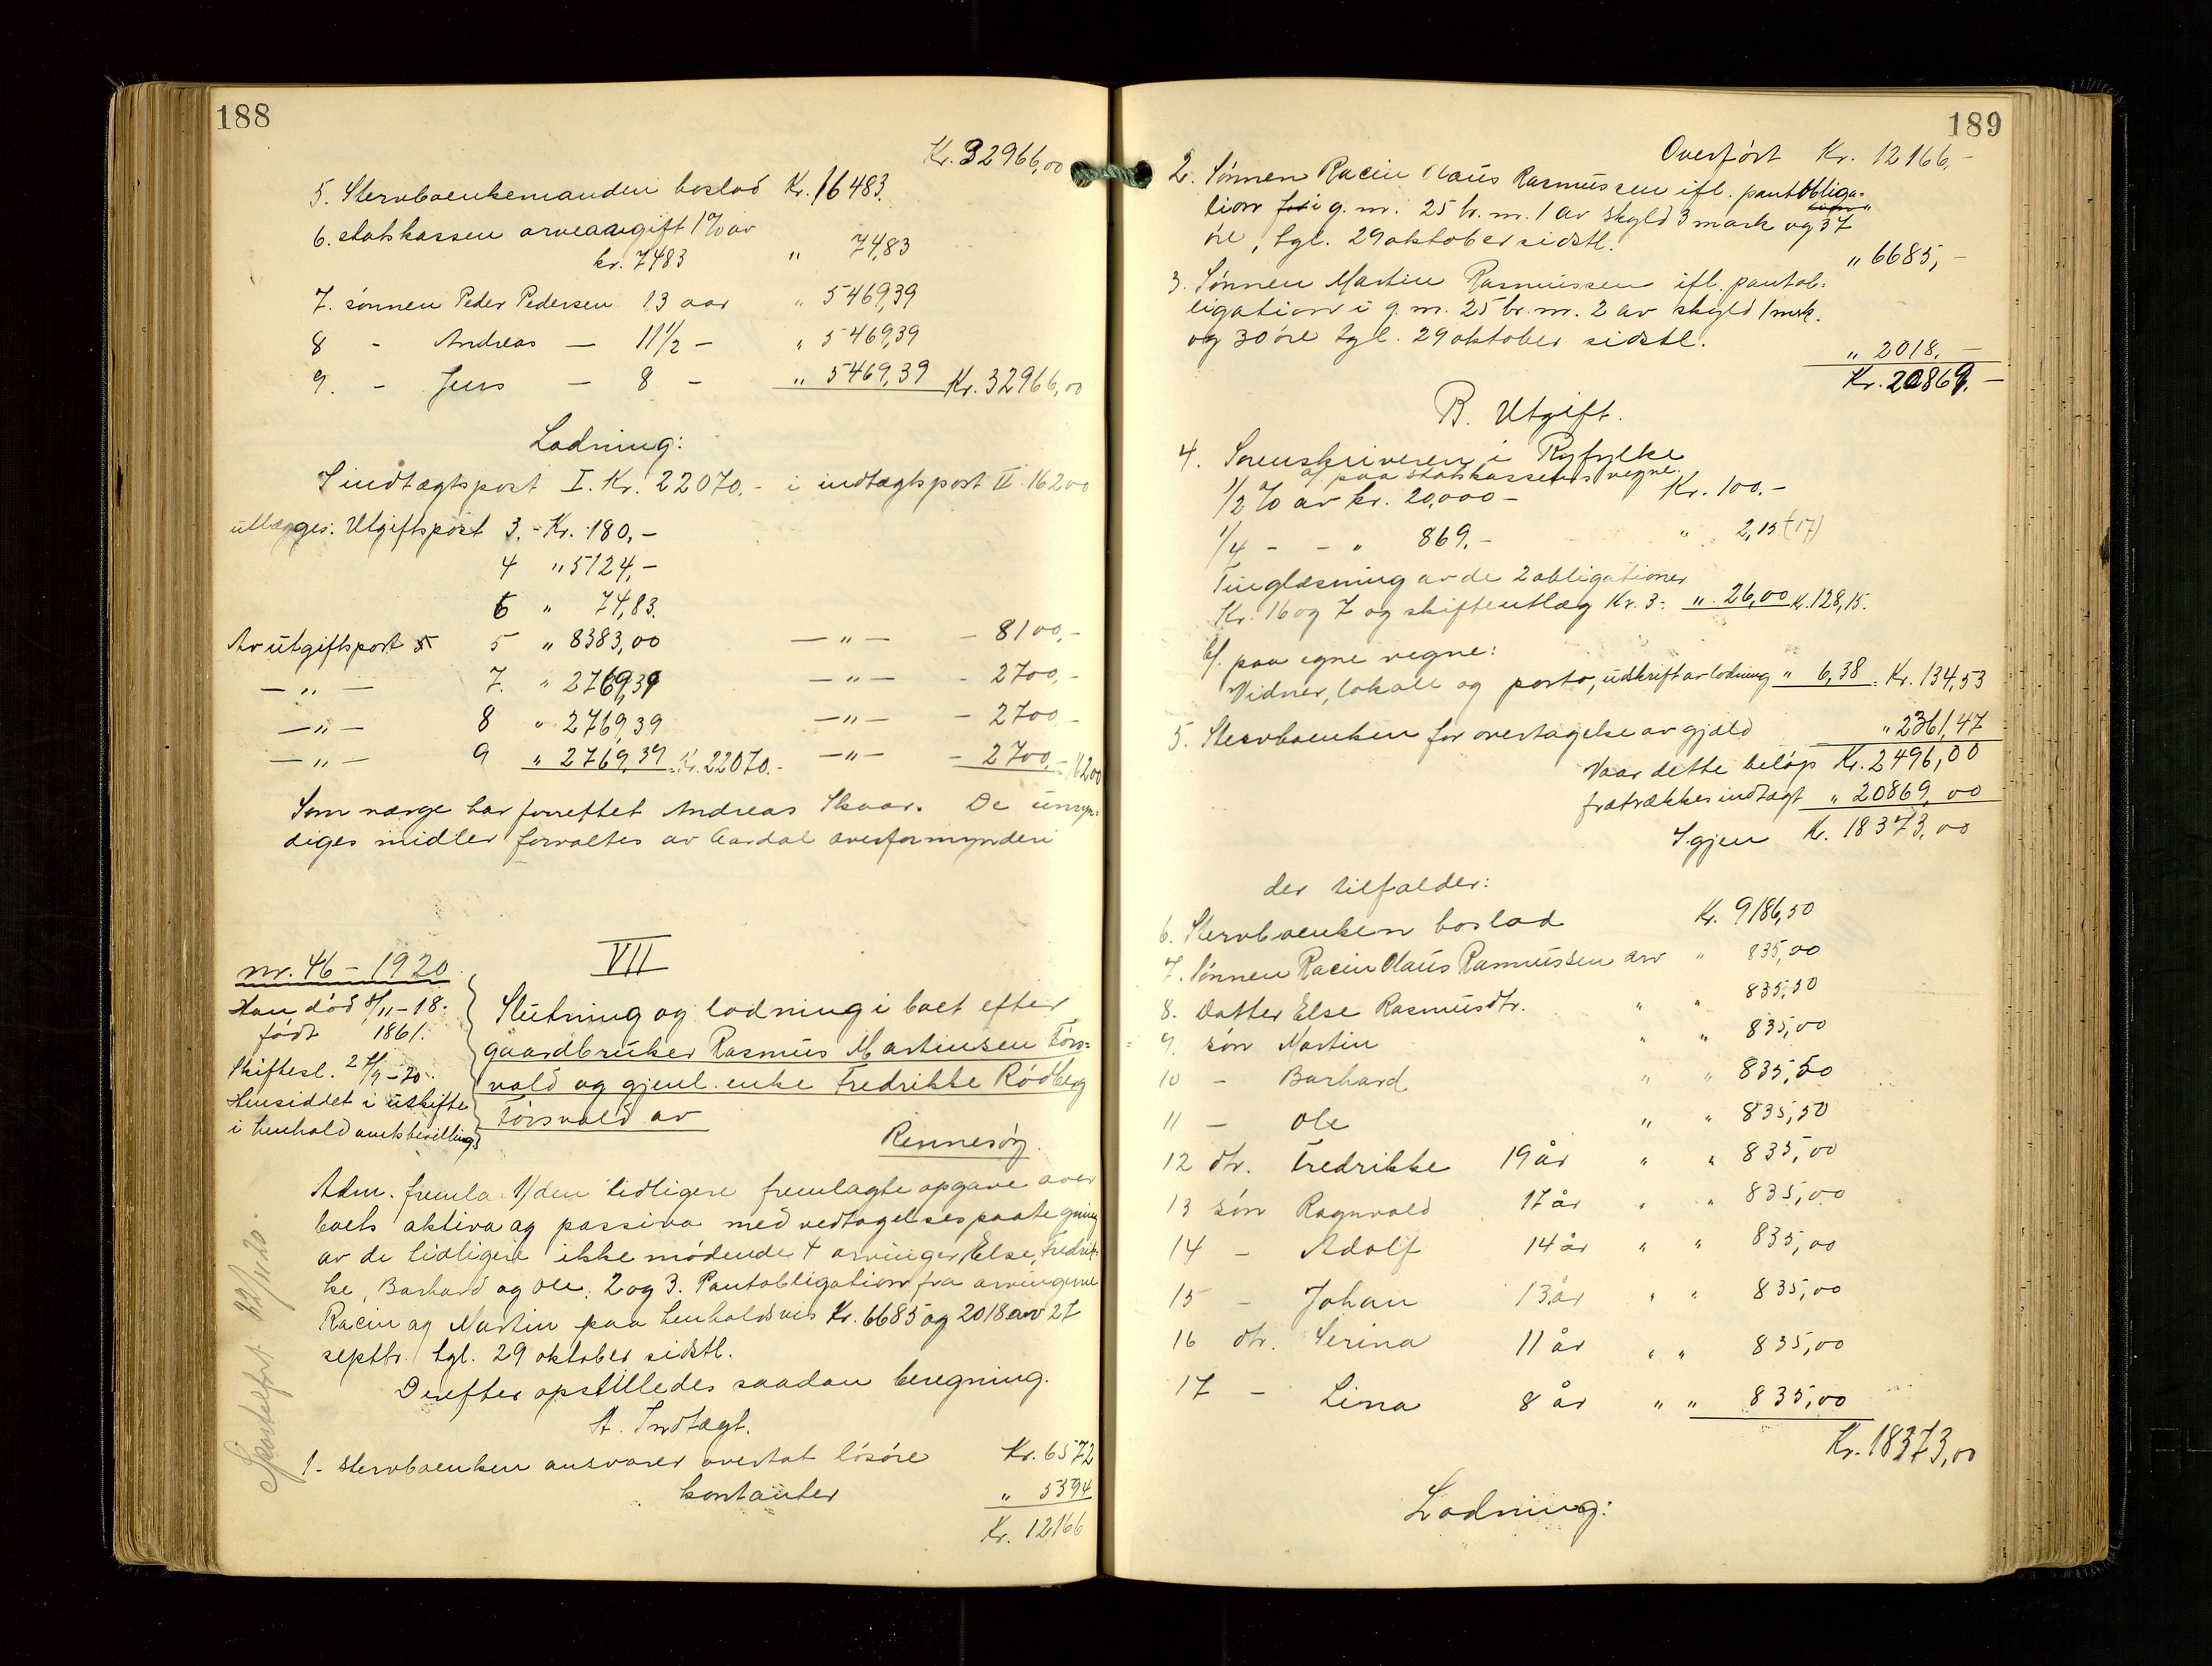 188
Kr. 32966,00
5. Stervboenkemanden boslod Kr. 16483.
6. statskassen arveavgift 1% av
kr. 7483 " 74,83
7. sønnen Peder Pedersen 13 aar " 5469,39
8 - Andreas — 11½ - " 5469,39
9. - Jens — 8 - " 5469,39 Kr. 32966,00
Lodning:
I indtægtspost I. Kr. 22070.- i indtægtspost II 16200
utlægges: Utgiftspost 3. - Kr. 180,-
4 " 5124,-
6 " 74,83.
Av utgiftspost 5 " 8383,00 — " — - 8100,-
— " — 7. " 2769,39 — " — - 2700,-
— " — 8 " 2769,39 — " — - 2700,-
— " — 9 " 2769,39 Kr. 22070.- — " — - 2700,- 16200
Som værge har forrettet Andreas Skaar. De umyn-
diges midler forvaltes av Aardal overformynderi
VII
nr. 46 - 1920
Man død 8/11-18.
født 1861.
Skiftesl. 27/9-20.
Hensiddet i uskifte
i henhold amtsbevilling
Slutning og lodning i boet efter
gaardbruker Rasmus Martinsen Førs-
vold og gjenl. enke Fredrikke Rødberg
Førsvold av
Rennesøy.
Adm. fremla 1/ den tidligere fremlagte opgave over
boets aktiva og passiva med vedtagelsespaategning
av de tidligere ikke mødende 4 arvinger, Else, Fredrik-
ke, Barhard og Ole. 2 og 3. Pantobligation fra arvingerne
Racin og Martin paa henholdsvis Kr. 6685 og 2018 av 27
septbr. tgl. 29 oktober sidstl.
Derefter opstilledes saadan beregning.
A. Indtægt.
1. Stervboenken ansvarer overtat løsøre Kr. 6572
kontanter " 5394
Kr. 12166
Sportelført 22/11 20.
189
Overført Kr. 12166,-
2. Sønnen Racin Olaus Rasmussen ifl. pantobliga-
tion i g. nr. 25 br. nr. 1 av skyld 3 mark og 37
øre, tgl. 29 oktober sidstl. " 6685,-
3. Sønnen Martin Rasmussen ifl. pantob-
ligation i g. nr. 25 br. nr. 2 av skyld 1 mrk.
og 30 øre tgl. 29 oktober sidstl. " 2018,-
Kr. 20869.-
B. Utgift.
4. Sorenskriveren i Ryfylke
a/ paa statskassens vegne:
½ % av kr. 20,000 - Kr. 100.-
¼ - - " 869.- " 2,15 (17)
Tinglæsning av de 2 obligationer
Kr. 16 og 7 og skifteutlæg Kr. 3: " 26,00 K. 128,15.
b/ paa egne vegne:
Vidner, lokale og porto, utskrift av lodning " 6,38 = Kr. 134,53
5. Stervboenken for overtagelse av gjæld " 2361,47
Naar dette beløp Kr. 2496,00
fratrækkes indtægt " 20869,00
Igjen K. 18373,00
der tilfalder:
6. Stervboenken boslod Kr. 9186,50
7. Sønnen Racin Olaus Rasmussen arv " 835,00
8. Datter Else Rasmusdtr. " " 835,50
9. søn Martin " " 835,00
10 - Barhard " " 835,50
11 - Ole " " 835,50
12 dtr. Fredrikke 19 år " " 835,00
13 søn Ragnvald 17 år " " 835,00
14 - Adolf 14 år " " 835,00
15 - Johan 13 år " " 835,00
16 dtr. Serina 11 år " " 835,00
17 - Lina 8 år " " 835,00
Kr. 18373,00
Lodning: